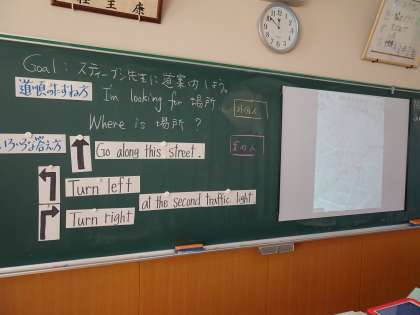 Goal : スティーブン先生に道案内しよう。
道順のたずね方
I'm looking for 場所
Where is 場所 ?
いろいろな答え方
Go along this street.
Turn left
Turn right
at the second traffic light